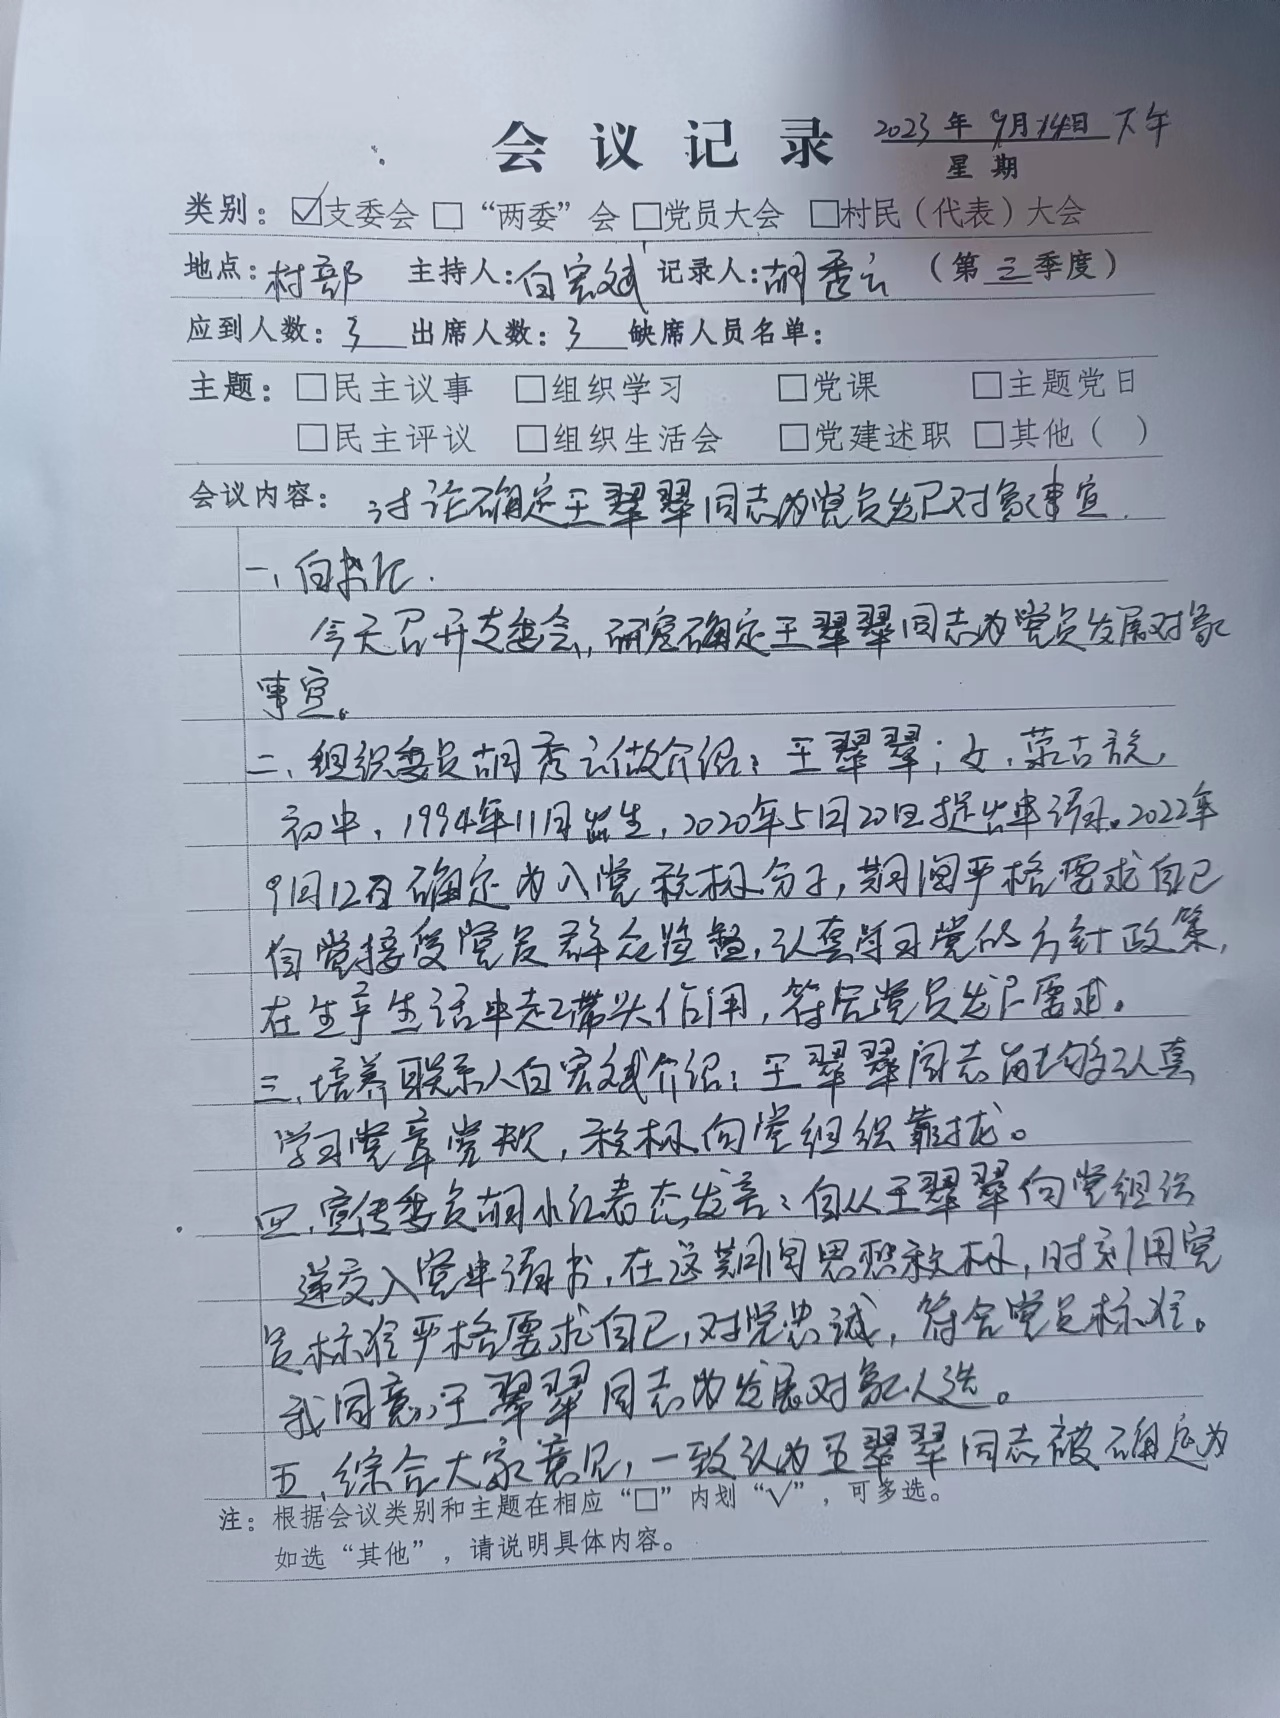 会议记录 2023年9月14日下午
星期
类别：☑支委会 □“两委”会 □党员大会 □村民（代表）大会
地点：村部 主持人：白宏斌 记录人：胡秀云 （第三季度）
应到人数：3 出席人数：3 缺席人员名单：
主题：□民主议事 □组织学习 □党课 □主题党日
□民主评议 □组织生活会 □党建述职 □其他（ ）
会议内容：讨论确定王翠翠同志为党员发展对象事宜.
一、白书记.
今天召开支委会，研究确定王翠翠同志为党员发展对象
事宜。
二、组织委员胡秀云做介绍：王翠翠；女，蒙古族，
初中，1994年11月出生，2020年5月20日提出申请。2022年
9月12日确定为入党积极分子，期间严格要求自己
自觉接受党员群众监督，认真学习党的方针政策，
在生产生活中起带头作用，符合党员发展要求。
三、培养联系人白宏斌介绍：王翠翠同志能够认真
学习党章党规，积极向党组织靠拢。
四、宣传委员胡小红表态发言：自从王翠翠向党组织
递交入党申请书，在这期间思想积极，时刻用党
员标准严格要求自己，对党忠诚，符合党员标准。
我同意王翠翠同志为发展对象人选。
五、综合大家意见，一致认为王翠翠同志被确定为
注：根据会议类别和主题在相应“□”内划“√”，可多选。
如选“其他”，请说明具体内容。